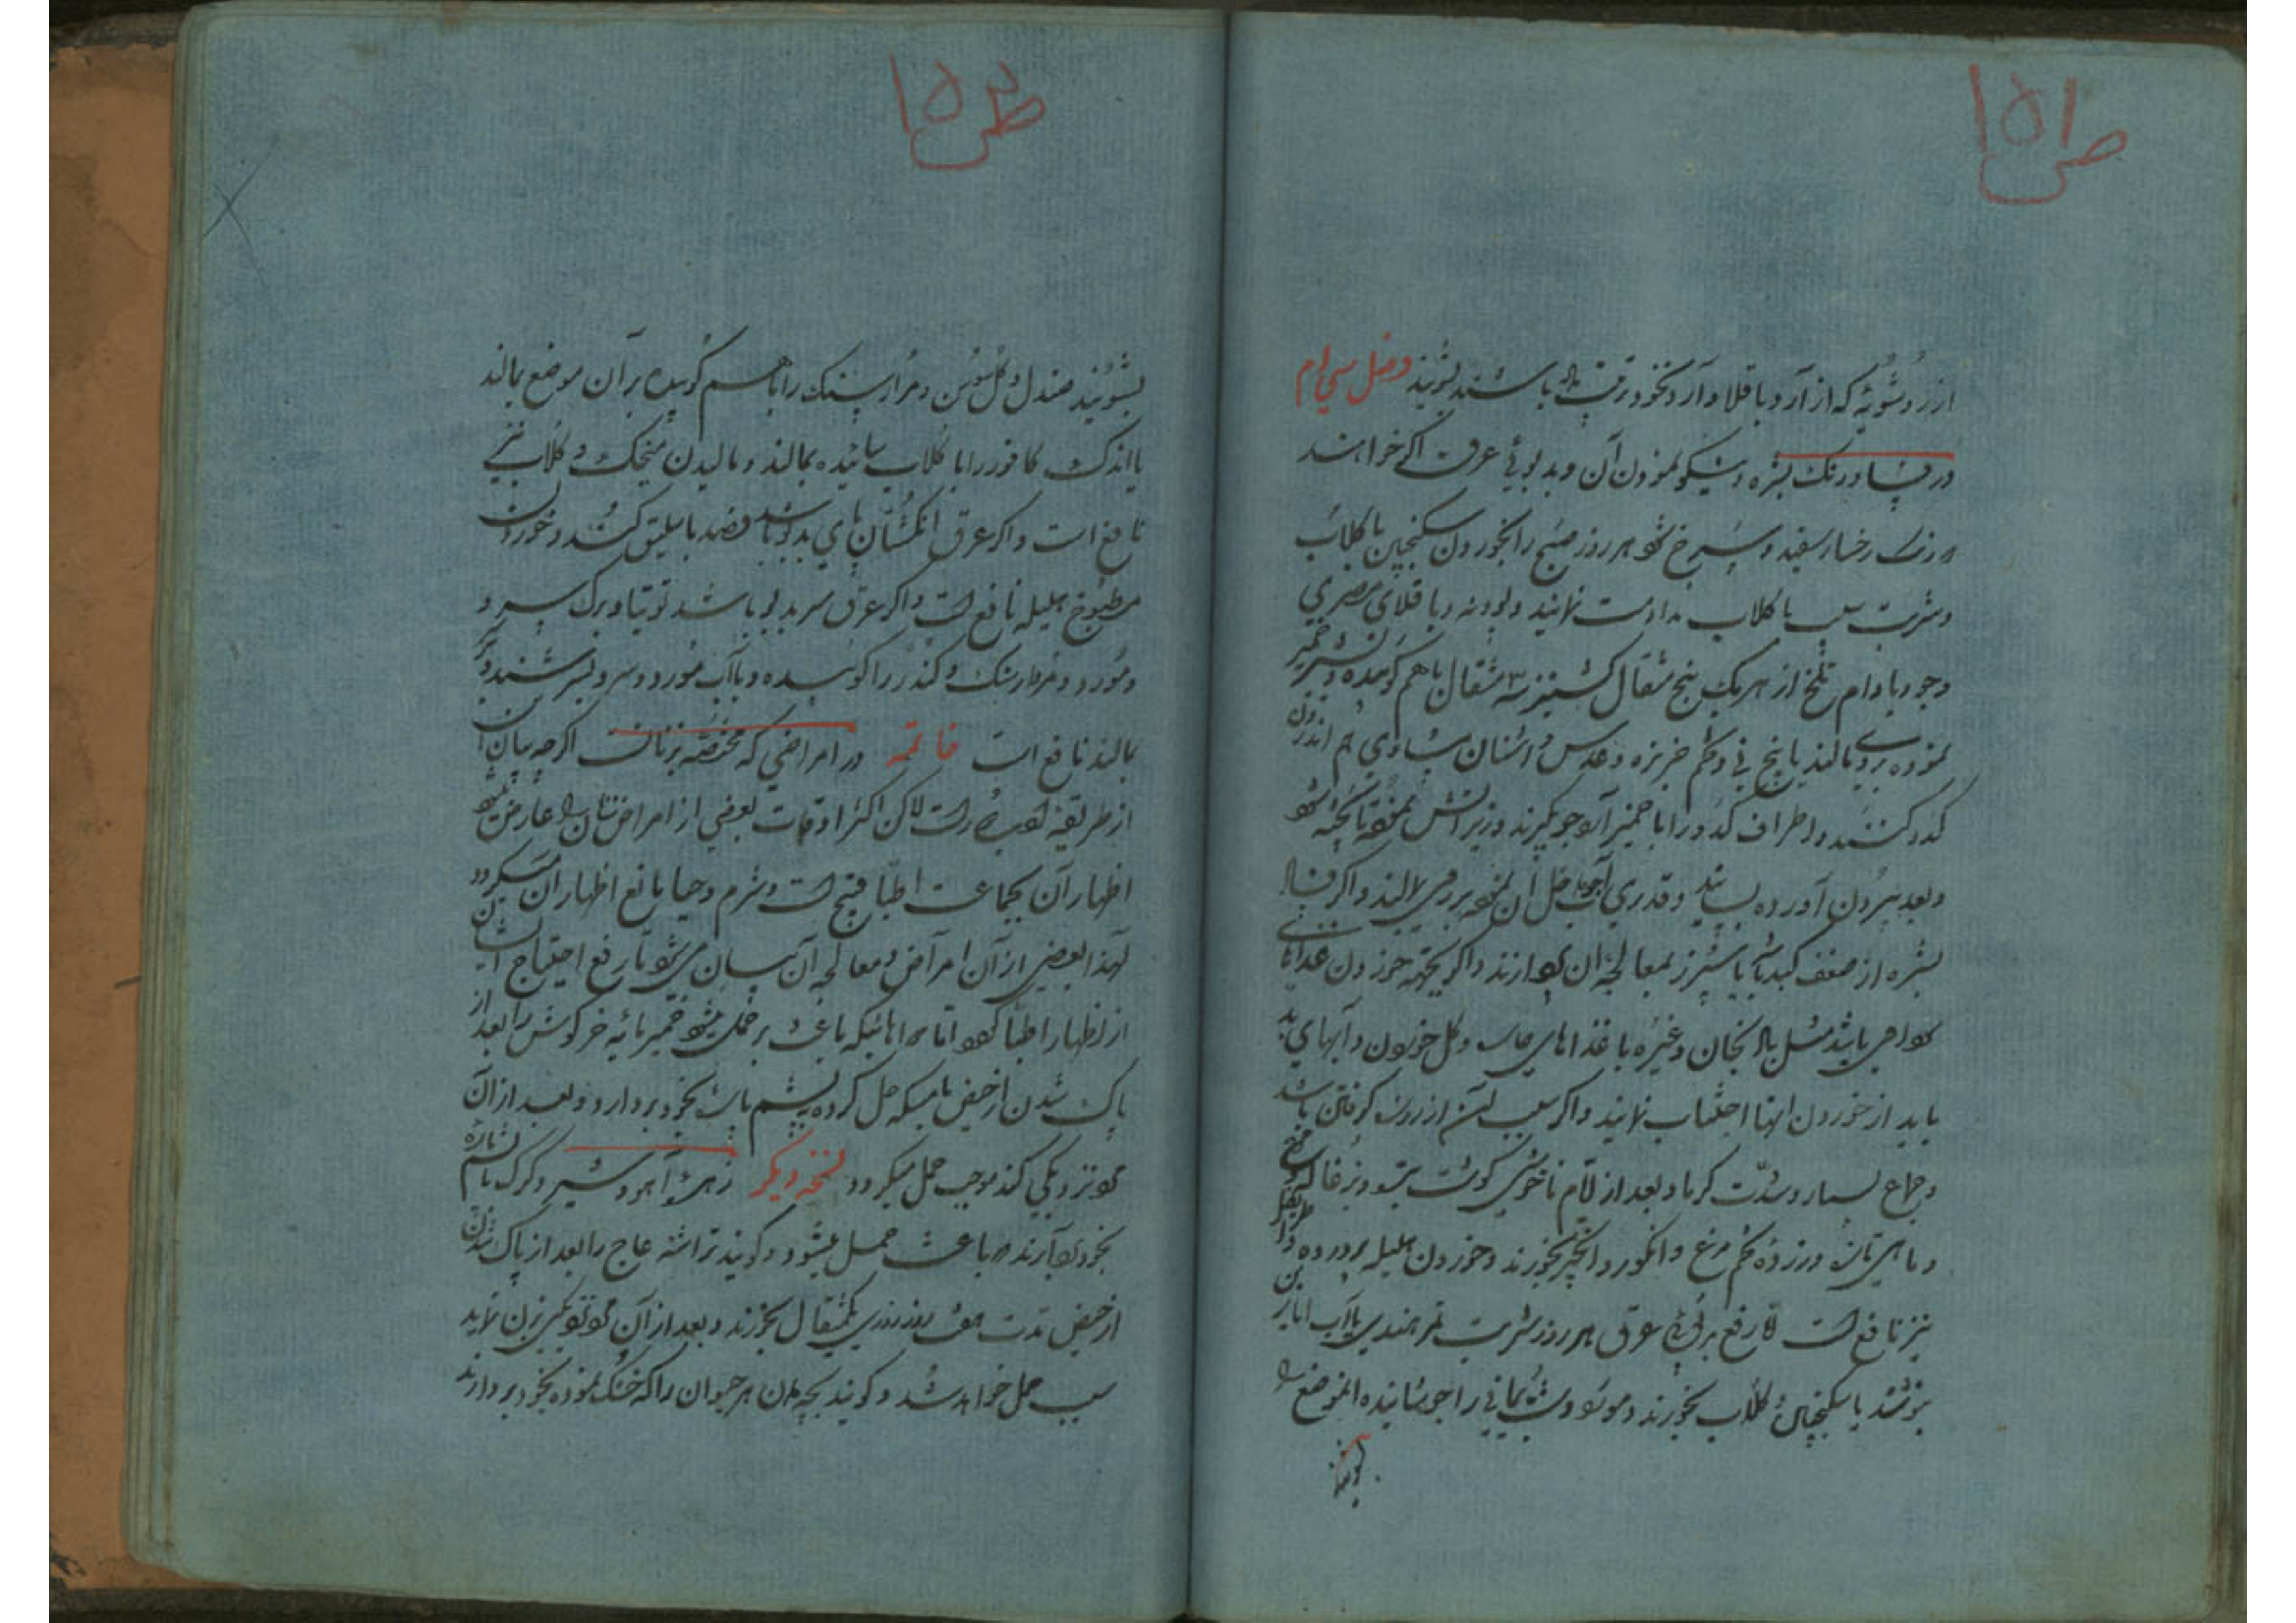 ص ۱۵۱
از زردشویه که از آرد باقلا و آرد نخود باشند بشویند فصل سی ام
در فساد رنگ بشره و نیکو نمودن آن و بدبوئی عرق اگر خواهند
رنگ رخسار سفید و سرخ شود هر روز صبح را بخوردن سکنجبین با گلاب
و شربت سیب با گلاب مداومت نمایند و پودنه و باقلای مصری
و جو و بادام تلخ از هر یک پنج مثقال کشنیز سه مثقال باهم کوبیده و بشیر خمیر
نموده بروی مالند یا بیخ نی و تخم خربزه و عدس و اشنان مساوی هم اندرون
کدو کنند و اطراف کدو را با خمیر آرد جو بگیرند و زیر آتش نموده تا پخته شود
و بعد بیرون آورده بسایند و قدری آب حل آن نموده بر روی مالند و اگر فساد
بشره از ضعف کبد باشد یا سپرز بمعالجه آن پردازند و اگر بجهة خوردن غذاهای
سوداوی باشد مثل بادنجان و غیره با غذاهای و گل خوردن و آبهای بد
باید از خوردن اینها اجتناب نمایند و اگر سبب آن از خون گرفتن باشد
و جماع بسیار و شدت گرما و بعد از ناخوشی گوشت بره
و ماهی تازه و زرده تخم مرغ و انگور و انجیر بخورند و خوردن هلیله پرورده و اطریفل
نیز نافع است و رفع بدبوئی عرق هر روز شربت تمر هندی با آب انارین
بنوشند یا سکنجبین و گلاب بخورند و مورد و شب یمانی را جوشانیده آنموضع را
بشویند
ص ۱۵۲
بشویند صندل و گل سوسن و مردارسنگ را باهم کوبیده بر آن موضع بمالند
یا اندک کافور را با گلاب سائیده بمالند و مالیدن میخک و گلاب نیز
نافع است و اگر عرق انگشتان پای بدبو باشد فصد باسلیق کنند و خوردن
مطبوخ هلیله نافع است و اگر عرق سر بدبو باشد توتیا و برگ سرو
و مورد و مردارسنگ و کندر را کوبیده و با آب مورد و سرو بسرشند و بر
بمالند نافع است خاتمه در امراضی که مختصه بزنانست اگر چه بیان آن
از طریقه است لاکن اکثر اوقات بعضی از امراض زنان را عارض میشود
اظهار آن بجماعت اطبا قبیح است و شرم و حیا مانع اظهار آن میگردد
لهذا بعضی از آن امراض و معالجه آن بیان می شود تا رفع احتیاج ایشان
از اظهار اطبا شود اما دواهائیکه باعث بر حمل میشود خمیر مایه خرگوش را بعد از
پاک شدن از حیض با مسکه حل کرده به پشم پاره بخود بردارد و بعد از آن
مرد نزدیکی کند موجب حمل میگردد نسخه دیگر زهره آهو و شیر و گرگ با پشم پاره
بخود بردارند باعث حمل میشود و گویند تراشه عاج را بعد از پاک شدن
از حیض مدت هفت روز روزی یکمثقال بخورند و بعد از آن مرد نزدیکی بزن نماید
سبب حمل خواهد شد و گویند بچه دان هر حیوان را که خشک نموده بخود بردارند